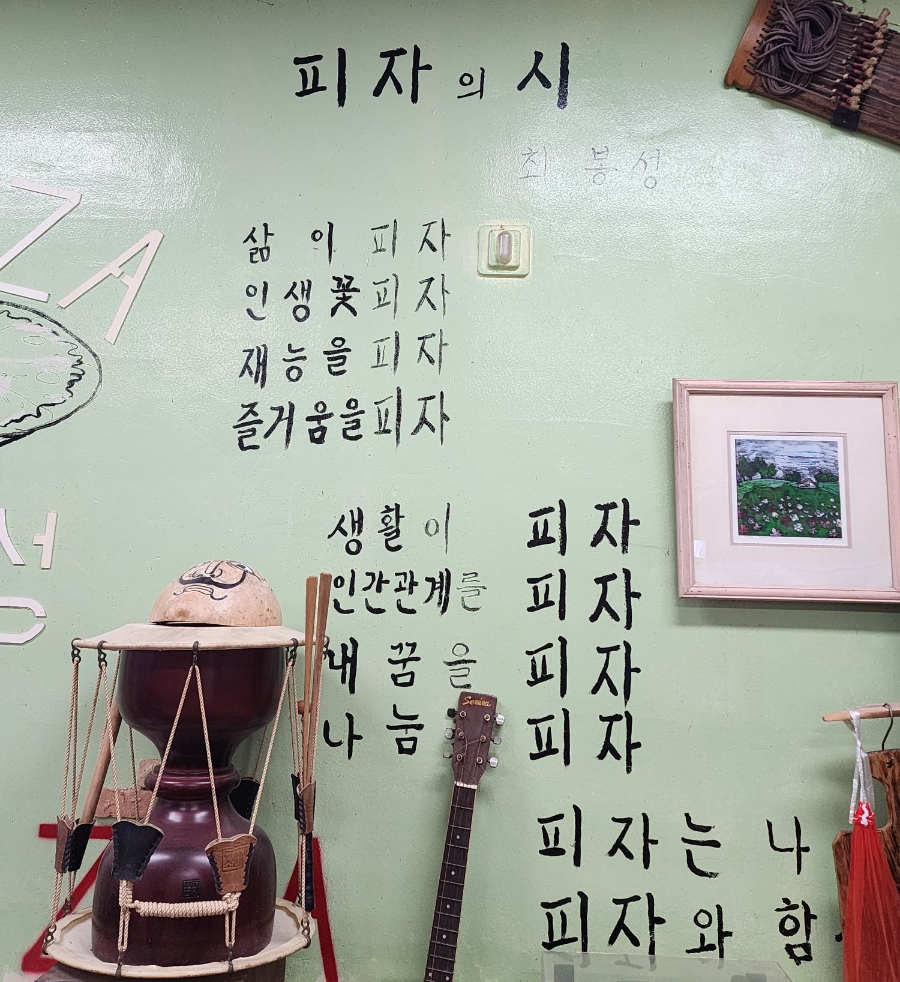 피자의 시
최봉성
ZA
삶이 피자
인생꽃피자
재능을 피자
즐거움을피자
생활이 피자
인간관계를 피자
내 꿈을 피자
나눔 피자
피자는 나
피자와 함